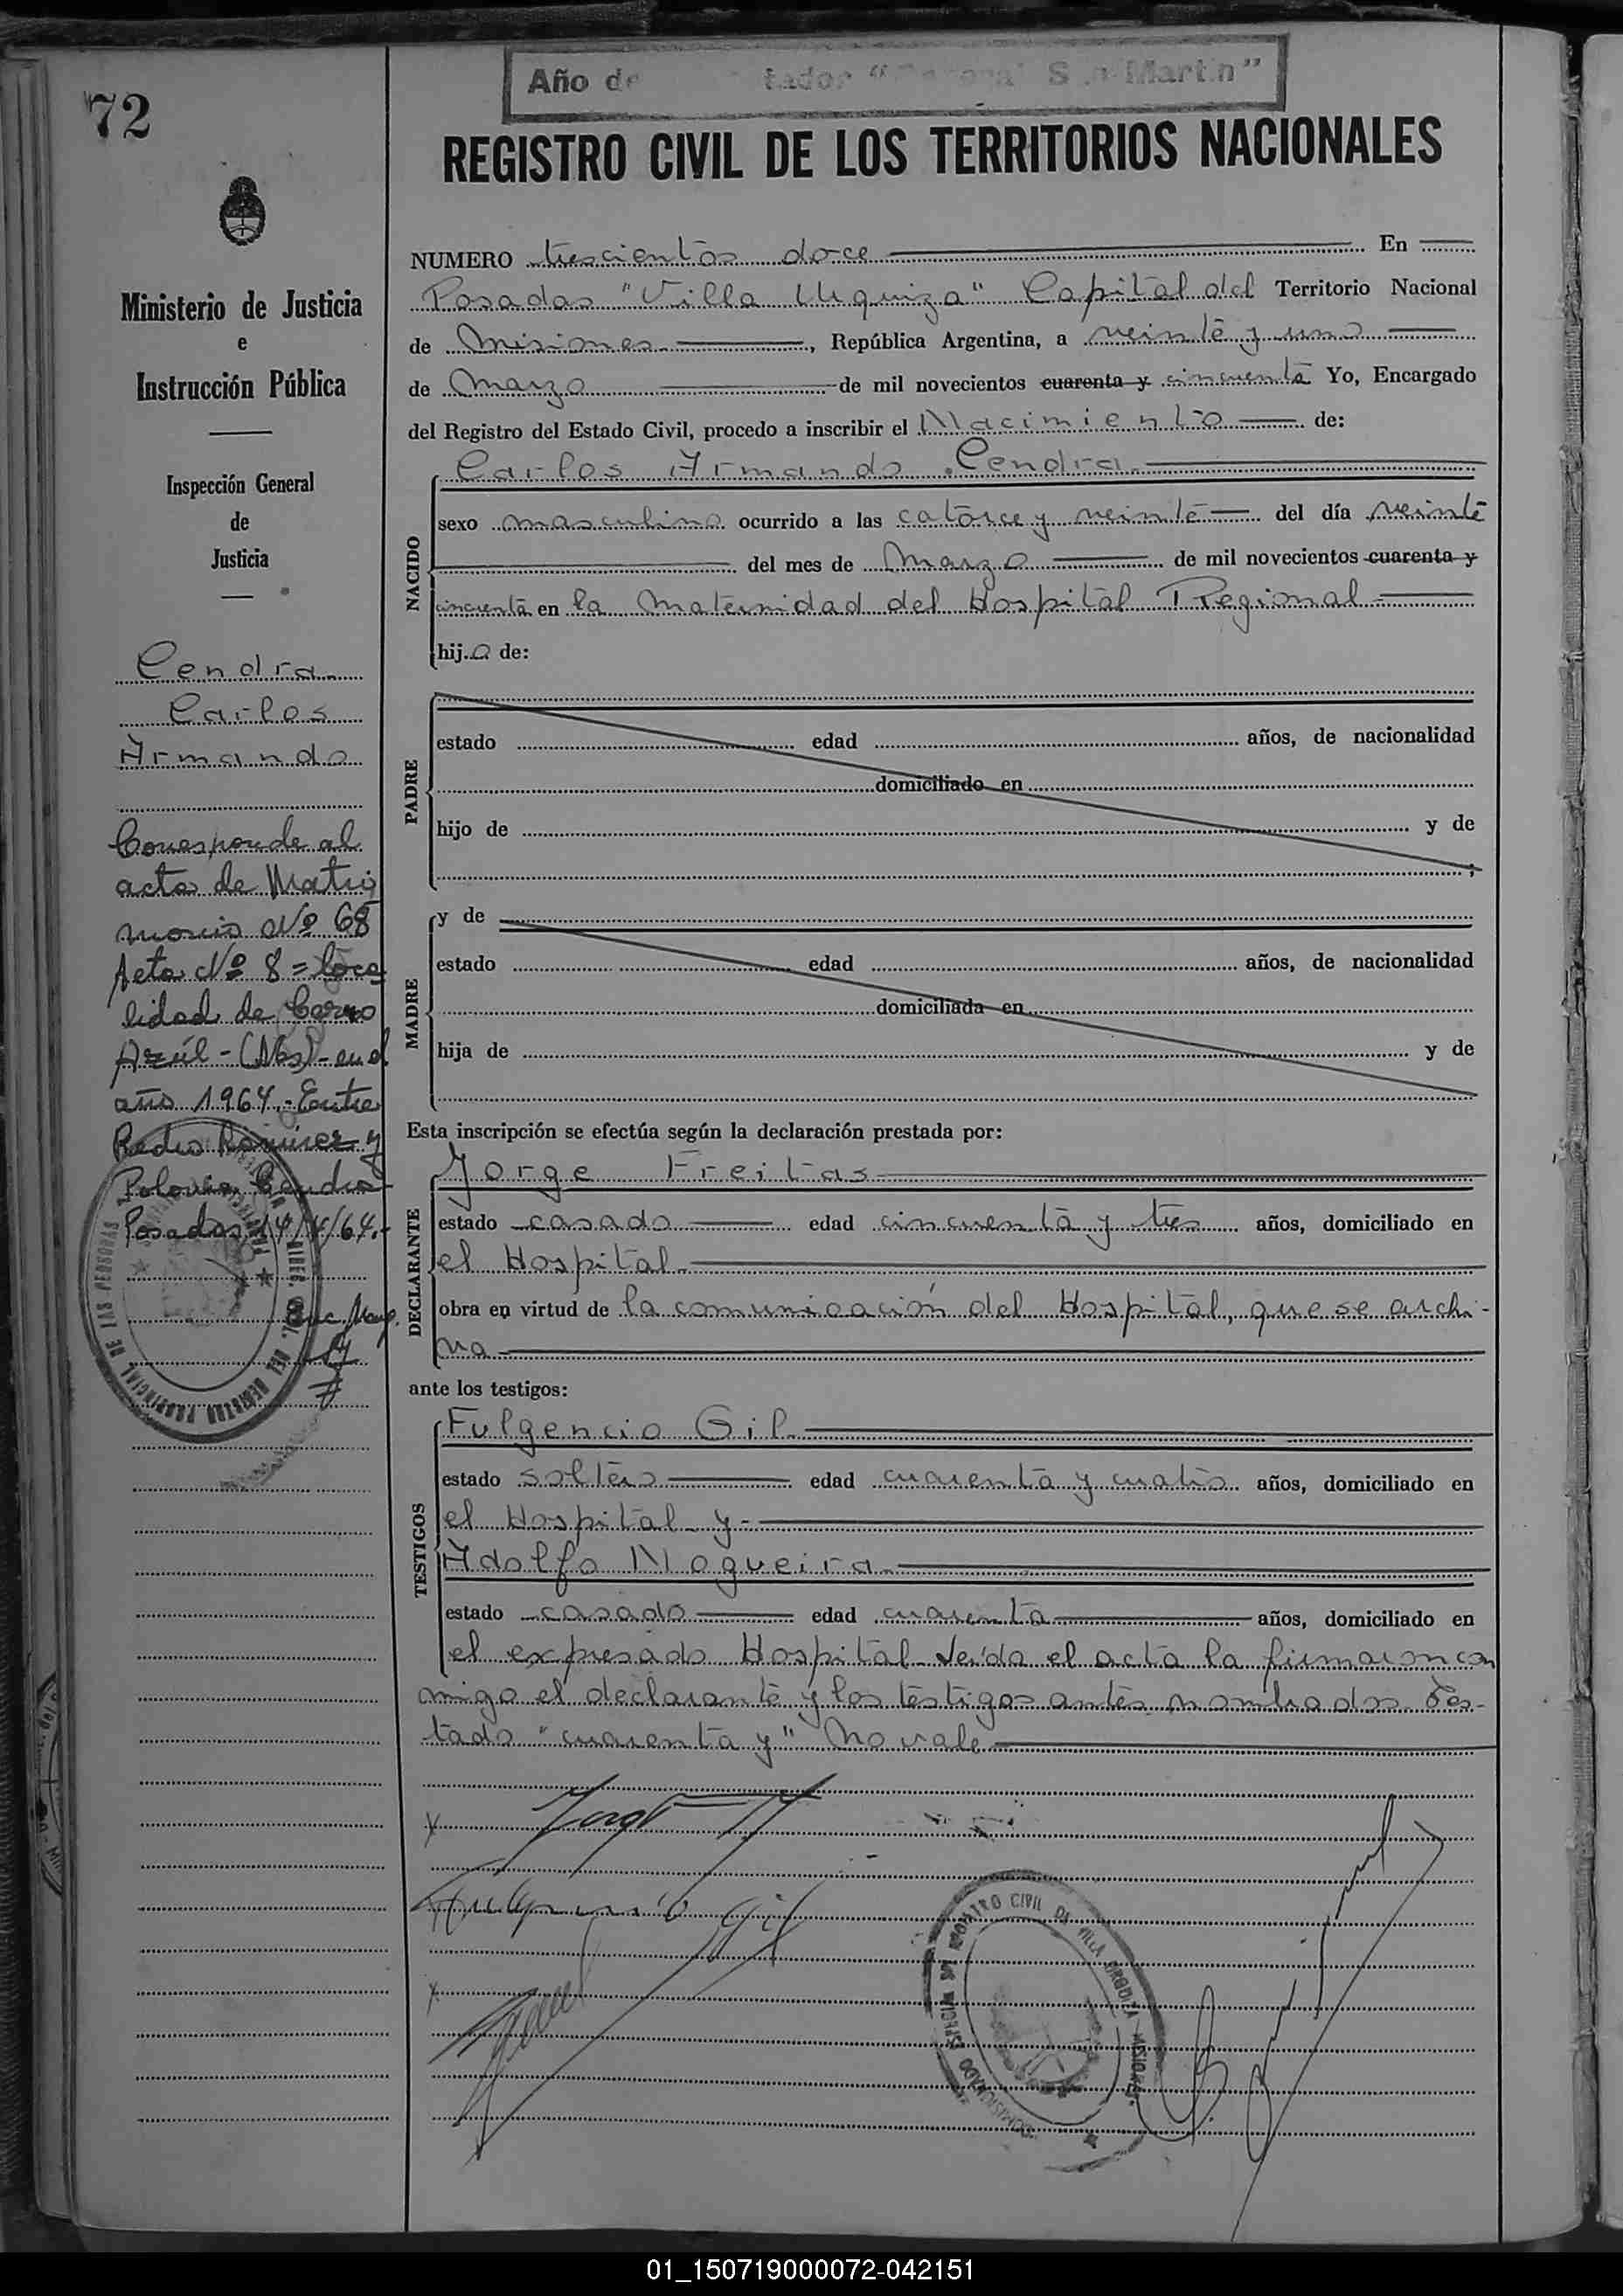 72
Año de tador "General San Martin"
REGISTRO CIVIL DE LOS TERRITORIOS NACIONALES
Ministerio de Justicia
e
Instrucción Pública
Inspección General
de
Justicia
Cendra
Carlos
Armando
Corresponde al
acta de Matri
monio Nº 68
Acta Nº 8 = loca
lidad de Cerro
Azúl - (Mns) - en el
año 1964.- Entre
Pedro Ramirez y
Polonia Cendra
Posadas, 14/ /64.-
NUMERO trescientos doce En
Posadas "Villa Urquiza" Capital del Territorio Nacional
de Misiones, República Argentina, a veinte y uno
de Marzo de mil novecientos cuarenta y cincuenta Yo, Encargado
del Registro del Estado Civil, procedo a inscribir el Nacimiento de:
NACIDO
Carlos Armando Cendra.
sexo masculino ocurrido a las catorce y veinte del día veinte
del mes de Marzo de mil novecientos cuarenta y
cincuenta en la Maternidad del Hospital Regional
hijo de:
PADRE
estado edad años, de nacionalidad
domiciliado en
hijo de y de
MADRE
y de
estado edad años, de nacionalidad
domiciliada en
hija de y de
Esta inscripción se efectúa según la declaración prestada por:
DECLARANTE
Jorge Freitas
estado casado edad cincuenta y tres años, domiciliado en
el Hospital
obra en virtud de la comunicación del Hospital, que se archi-
va
ante los testigos:
TESTIGOS
Fulgencio Gil
estado soltero edad cuarenta y cuatro años, domiciliado en
el Hospital y
Adolfo Nogueira
estado casado edad cuarenta años, domiciliado en
el expresado Hospital Leída el acta la firmaron con
migo el declarante y los testigos antes nombrados. Tes-
tado "cuarenta y" No vale
Fulgencio Gil
REGISTRO CIVIL DE VILLA URQUIZA MISIONES
01_150719000072-042151